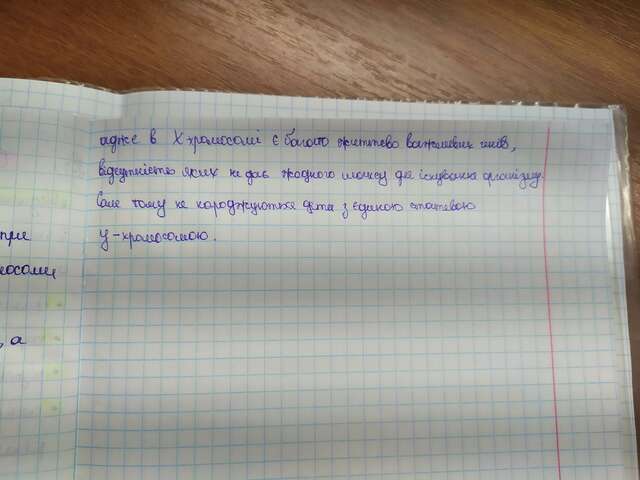 адже в X хромосомі є багато життєво важливих генів,
відсутність яких не дає жодного шансу для існування організму.
Саме тому не народжуються діти з єдиною статевою
У-хромосомою.
при
мосоми
, а